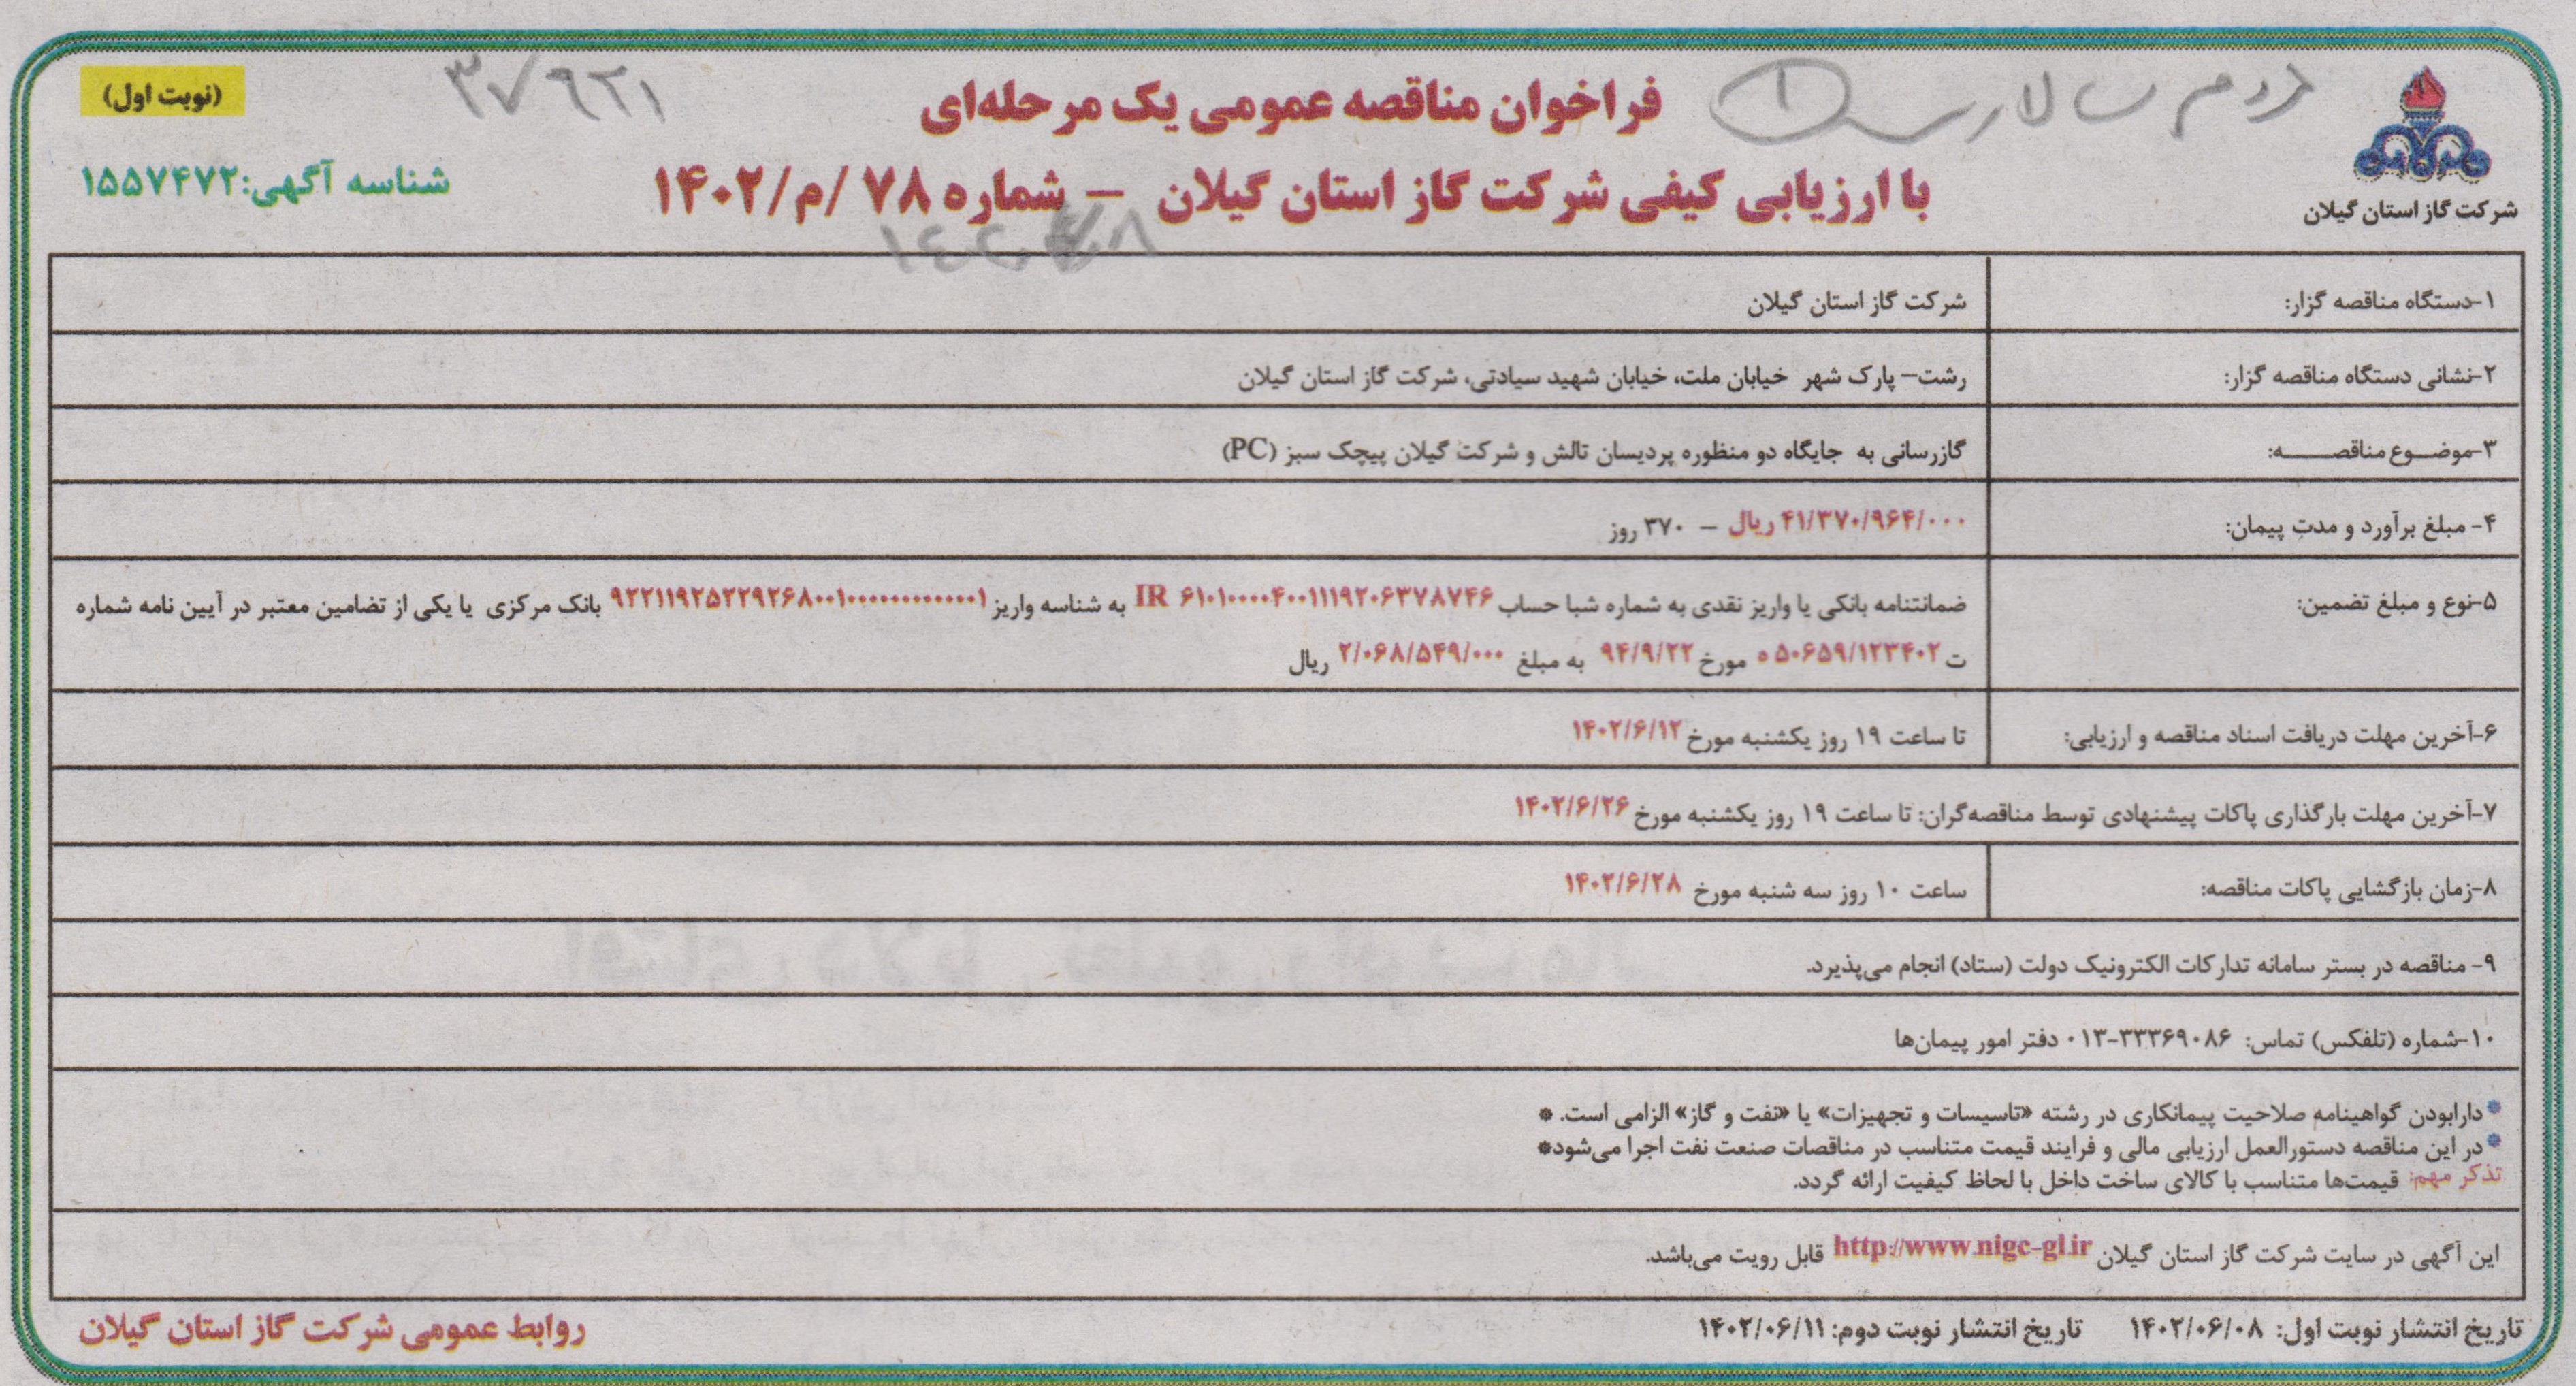 مردم سالاری ۱
۳۷۹۲۱
(نوبت اول)
فراخوان مناقصه عمومی یک مرحله‌ای
با ارزیابی کیفی شرکت گاز استان گیلان – شماره ۷۸ /م/۱۴۰۲
شناسه آگهی:۱۵۵۷۴۷۲
شرکت گاز استان گیلان
۱-دستگاه مناقصه گزار: شرکت گاز استان گیلان
۲-نشانی دستگاه مناقصه گزار: رشت– پارک شهر خیابان ملت، خیابان شهید سیادتی، شرکت گاز استان گیلان
۳-موضوع مناقصه: گازرسانی به جایگاه دو منظوره پردیسان تالش و شرکت گیلان پیچک سبز (PC)
۴- مبلغ برآورد و مدت پیمان: ۴۱/۳۷۰/۹۶۴/۰۰۰ ریال – ۳۷۰ روز
۵-نوع و مبلغ تضمین: ضمانتنامه بانکی یا واریز نقدی به شماره شبا حساب IR ۶۱۰۱۰۰۰۰۴۰۰۱۱۱۱۹۲۰۶۳۷۸۷۴۶ به شناسه واریز ۹۲۲۱۱۹۲۵۲۲۹۲۶۸۰۰۱۰۰۰۰۰۰۰۰۰۰۰۰۱ بانک مرکزی یا یکی از تضامین معتبر در آیین نامه شماره
ت ۵۰۶۵۹/۱۲۳۴۰۲ ه مورخ ۹۴/۹/۲۲ به مبلغ ۲/۰۶۸/۵۴۹/۰۰۰ ریال
۶-آخرین مهلت دریافت اسناد مناقصه و ارزیابی: تا ساعت ۱۹ روز یکشنبه مورخ ۱۴۰۲/۶/۱۲
۷-آخرین مهلت بارگذاری پاکات پیشنهادی توسط مناقصه‌گران: تا ساعت ۱۹ روز یکشنبه مورخ ۱۴۰۲/۶/۲۶
۸-زمان بازگشایی پاکات مناقصه: ساعت ۱۰ روز سه شنبه مورخ ۱۴۰۲/۶/۲۸
۹- مناقصه در بستر سامانه تدارکات الکترونیک دولت (ستاد) انجام می‌پذیرد.
۱۰-شماره (تلفکس) تماس: ۳۳۳۶۹۰۸۶-۰۱۳ دفتر امور پیمان‌ها
*دارابودن گواهینامه صلاحیت پیمانکاری در رشته «تاسیسات و تجهیزات» یا «نفت و گاز» الزامی است. *
*در این مناقصه دستورالعمل ارزیابی مالی و فرایند قیمت متناسب در مناقصات صنعت نفت اجرا می‌شود*
تذکر مهم: قیمت‌ها متناسب با کالای ساخت داخل با لحاظ کیفیت ارائه گردد.
این آگهی در سایت شرکت گاز استان گیلان http://www.nigc-gl.ir قابل رویت می‌باشد.
تاریخ انتشار نوبت اول: ۱۴۰۲/۰۶/۰۸ تاریخ انتشار نوبت دوم: ۱۴۰۲/۰۶/۱۱
روابط عمومی شرکت گاز استان گیلان